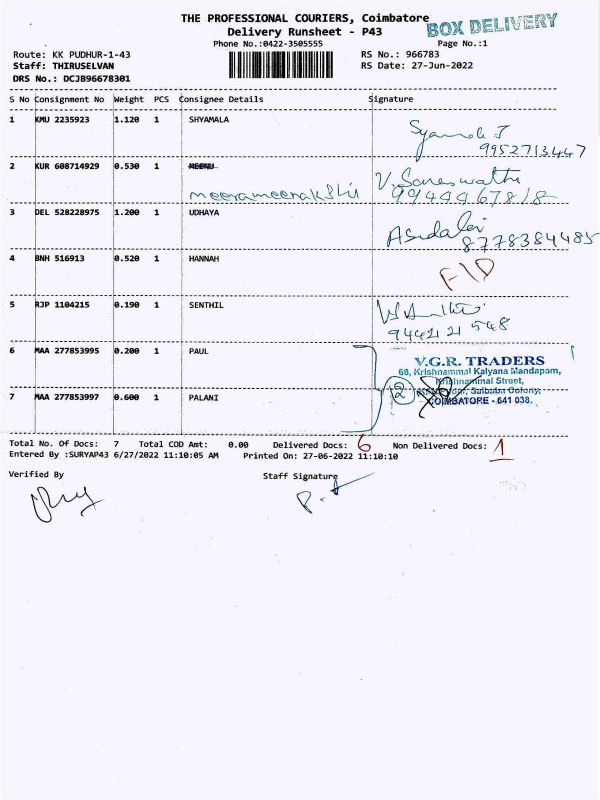 THE PROFESSIONAL COURIERS, Coimbatore
BOX DELIVERY
Delivery Runsheet - P43
Phone No.:0422-3505555 Page No.:1
Route: KK PUDHUR-1-43 RS No.: 966783
Staff: THIRUSELVAN RS Date: 27-Jun-2022
DRS No.: DCJB96678301
S No Consignment No Weight PCS Consignee Details Signature
1 KMU 2235923 1.120 1 SHYAMALA
9952713447
2 KUR 608714929 0.530 1 MEENU V. Saraswathi
meerameenakshi 9944967818
3 DEL 528228975 1.200 1 UDHAYA
8778384485
4 BNH 516913 0.520 1 HANNAH
F/D
5 RJP 1104215 0.190 1 SENTHIL
944221548
6 MAA 277853995 0.200 1 PAUL V.G.R. TRADERS
66, Krishnammal Kalyana Mandapam,
Krishnammal Street,
2 Saibaba Colony,
7 MAA 277853997 0.600 1 PALANI COIMBATORE - 641 038.
Total No. Of Docs: 7 Total COD Amt: 0.00 Delivered Docs: 6 Non Delivered Docs: 1
Entered By :SURYAP43 6/27/2022 11:10:05 AM Printed On: 27-06-2022 11:10:10
Verified By Staff Signature